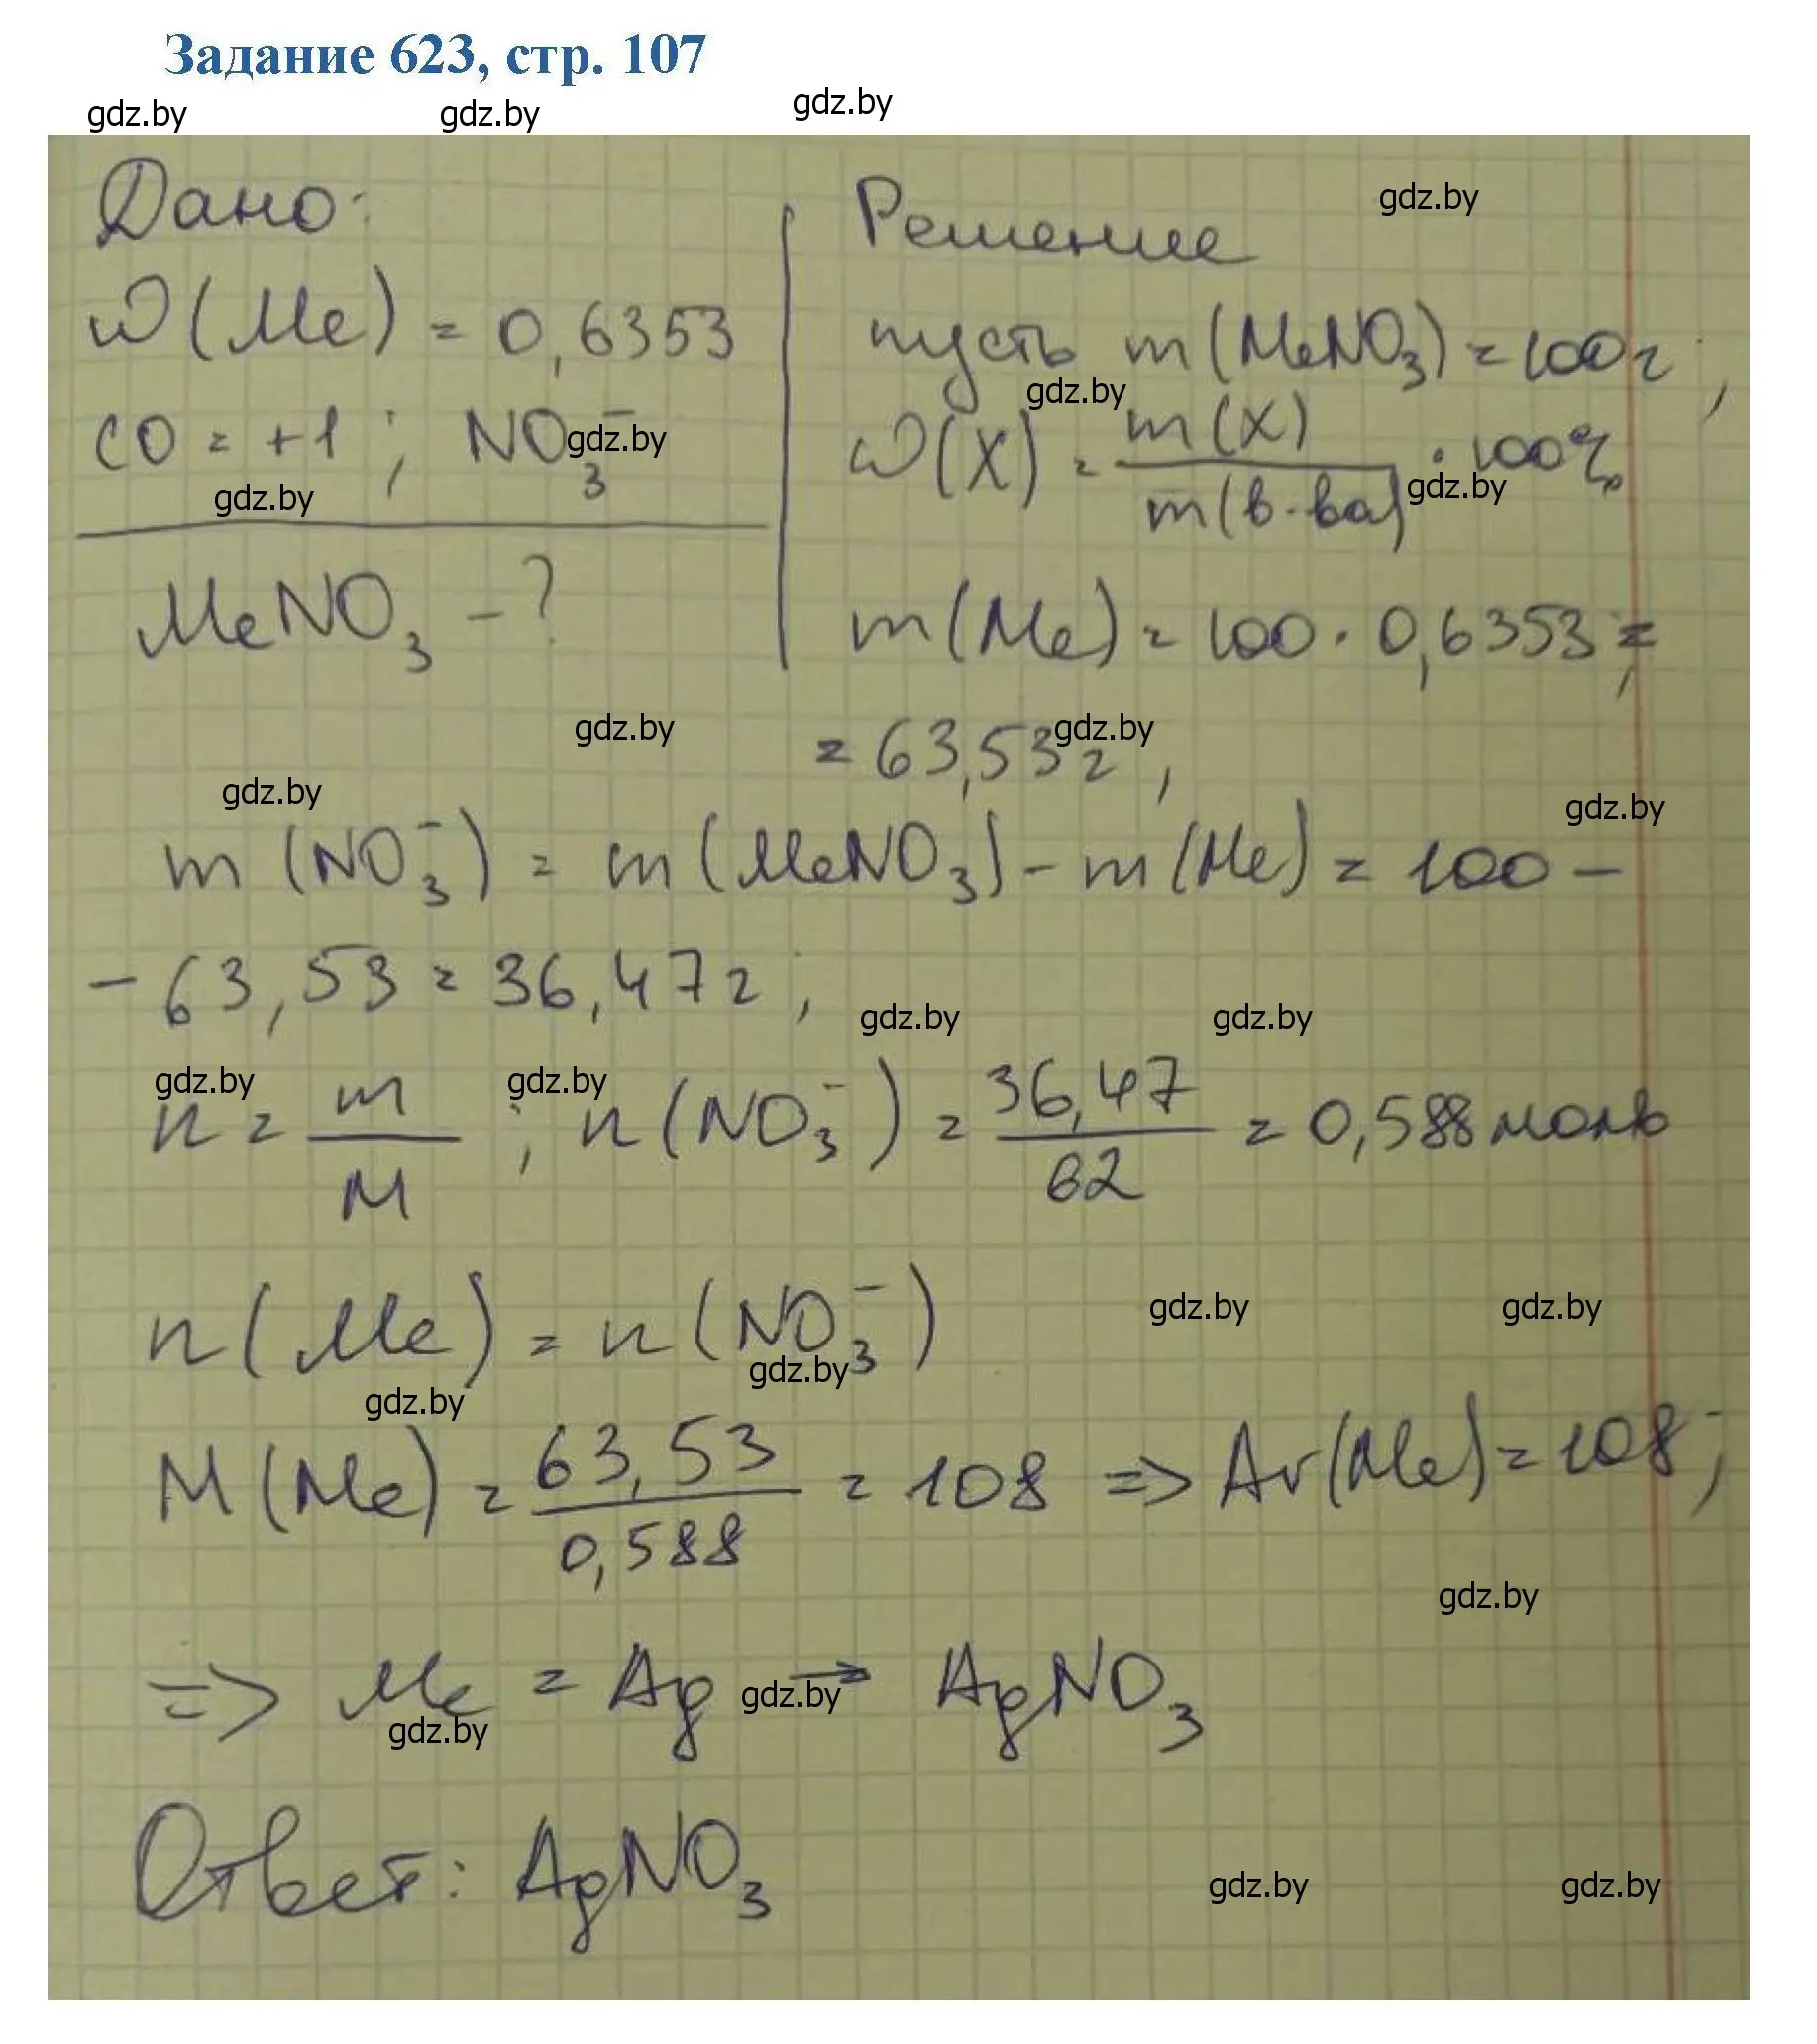 Задание 623, стр. 107
gdz.by gdz.by gdz.by
Дано:
ω(Me) = 0,6353
CO = +1 ; NO₃⁻
gdz.by
gdz.by
MeNO₃ - ?
Решение
gdz.by
пусть m(MeNO₃) = 100 г ;
gdz.by
ω(X) = m(X) / m(в-ва) · 100%
gdz.by
m(Me) = 100 · 0,6353 =
= 63,53 г ,
gdz.by gdz.by
gdz.by gdz.by
m (NO₃⁻) = m (MeNO₃) - m (Me) = 100 -
- 63,53 = 36,47 г ;
gdz.by gdz.by
gdz.by gdz.by
n = m / M ; n (NO₃⁻) = 36,47 / 62 = 0,588 моль
gdz.by gdz.by
n (Me) = n (NO₃⁻)
gdz.by
gdz.by
M (Me) = 63,53 / 0,588 = 108 => Ar(Me) = 108 ;
gdz.by
=> Me = Ag → AgNO₃
gdz.by
gdz.by
Ответ: AgNO₃
gdz.by gdz.by